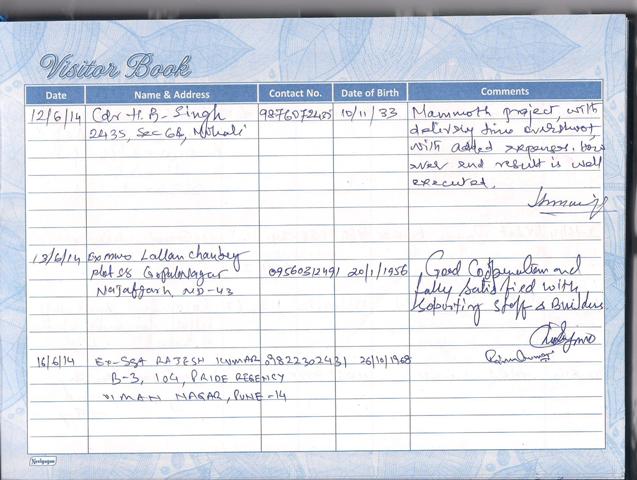 Visitor Book
Date Name & Address Contact No. Date of Birth Comments
12/6/14 Cdr H. B. Singh 9876072435 10/11/33 Mammoth project, with
2435, Sec 68, Mohali delivery time overshoot,
with added expenses. How
ever end result is well
executed.
13/6/14 Ex MWO Lallan Chaubey
plot 58 Gopal Nagar 09560312491 20/1/1956 Good Cooperation and
Najafgarh, ND-43 fully satisfied with
Soporting Staff & Builders
16/6/14 Ex-SGT RAJESH KUMAR 09822302431 26/10/1968
B-3, 104, PRIDE REGENCY
VIMAN NAGAR, PUNE-14
Neelgagan